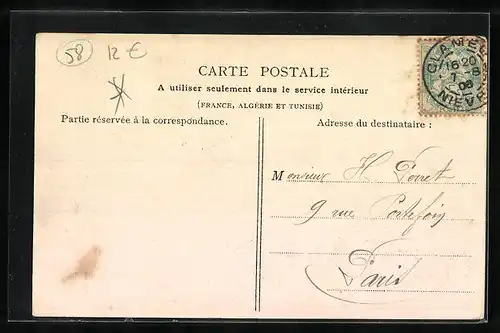 58 12 €
CARTE POSTALE
A utiliser seulement dans le service intérieur
(FRANCE, ALGÉRIE ET TUNISIE)
Partie réservée à la correspondance.
Adresse du destinataire :
CLAMECY
16 20
7 - 8
08
NIEVRE
Monsieur H Poret
9 rue Portefoin
Paris